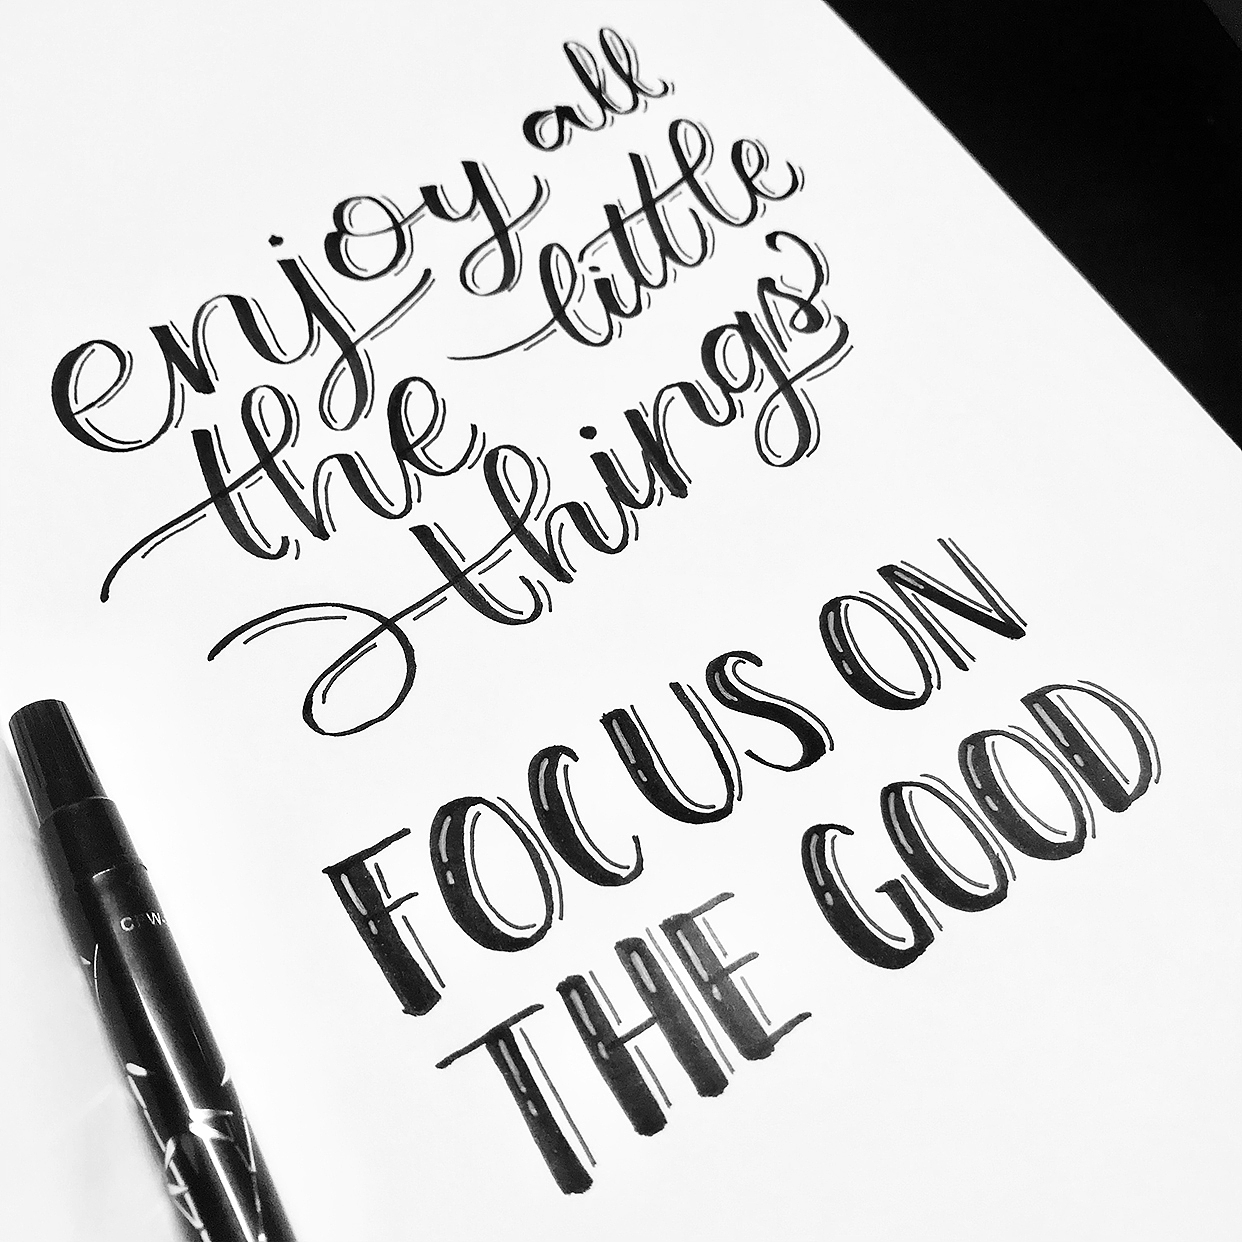 enjoy all
the little
things
FOCUS ON
THE GOOD